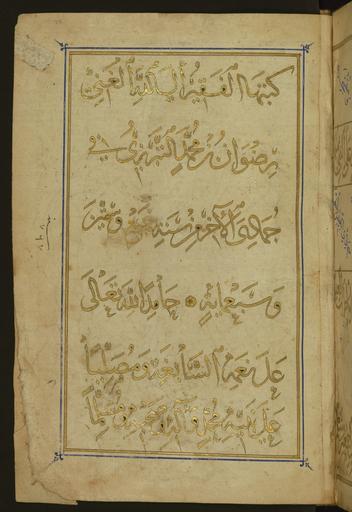 كتبها الفقير إلى الله الغني
رضوان بن محمد التبريزي في
جمادى الآخر من سنة وخمسين
وسبعماية حامدا لله تعالى
على نعمه السابغة ومصليا
على نبيه محمد وآله وصحبه ومسلما